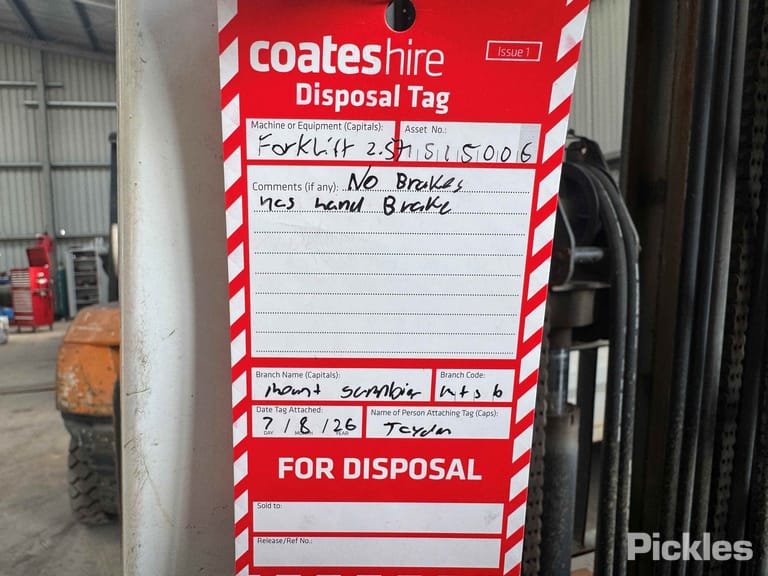 coateshire
Issue 1
Disposal Tag
Machine or Equipment (Capitals):
Asset No.:
Forklift 2.5t
1515006
Comments (if any): No Brakes
has hand Brake
Branch Name (Capitals):
Branch Code:
mount
Date Tag Attached:
Name of Person Attaching Tag (Caps):
7/8/26
DAY MONTH YEAR
FOR DISPOSAL
Sold to:
Release/Ref No.:
Pickles